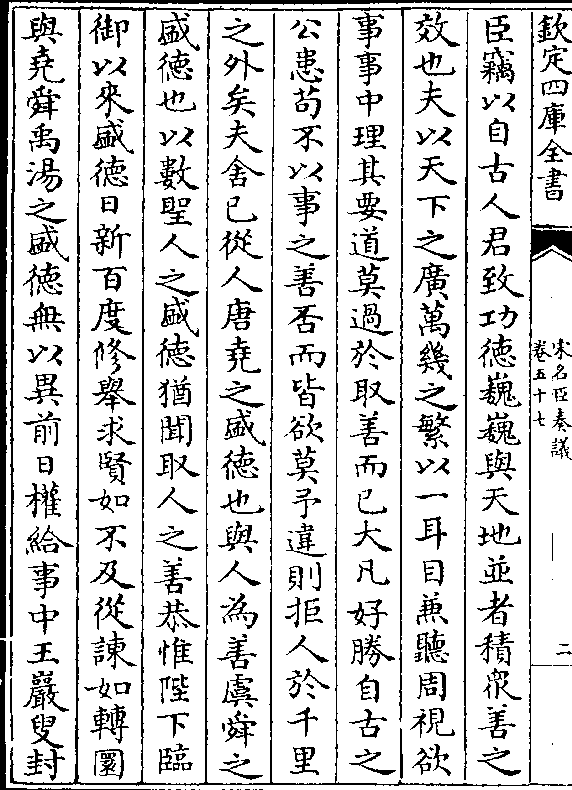 欽定四庫全書
宋名臣奏議
卷五十七
二
臣竊以自古人君致功德巍巍與天地並者積衆善之
效也夫以天下之廣萬幾之繁以一耳目兼聽周視欲
事事中理其要道莫過於取善而已大凡好勝自古之
公患苟不以事之善否而皆欲莫予違則拒人於千里
之外矣夫舍已從人唐堯之盛德也與人為善虞舜之
盛德也以數聖人之盛德猶聞取人之善恭惟陛下臨
御以來盛德日新百度修舉求賢如不及從諫如轉圜
與堯舜禹湯之盛德無以異前日權給事中王巖叟封